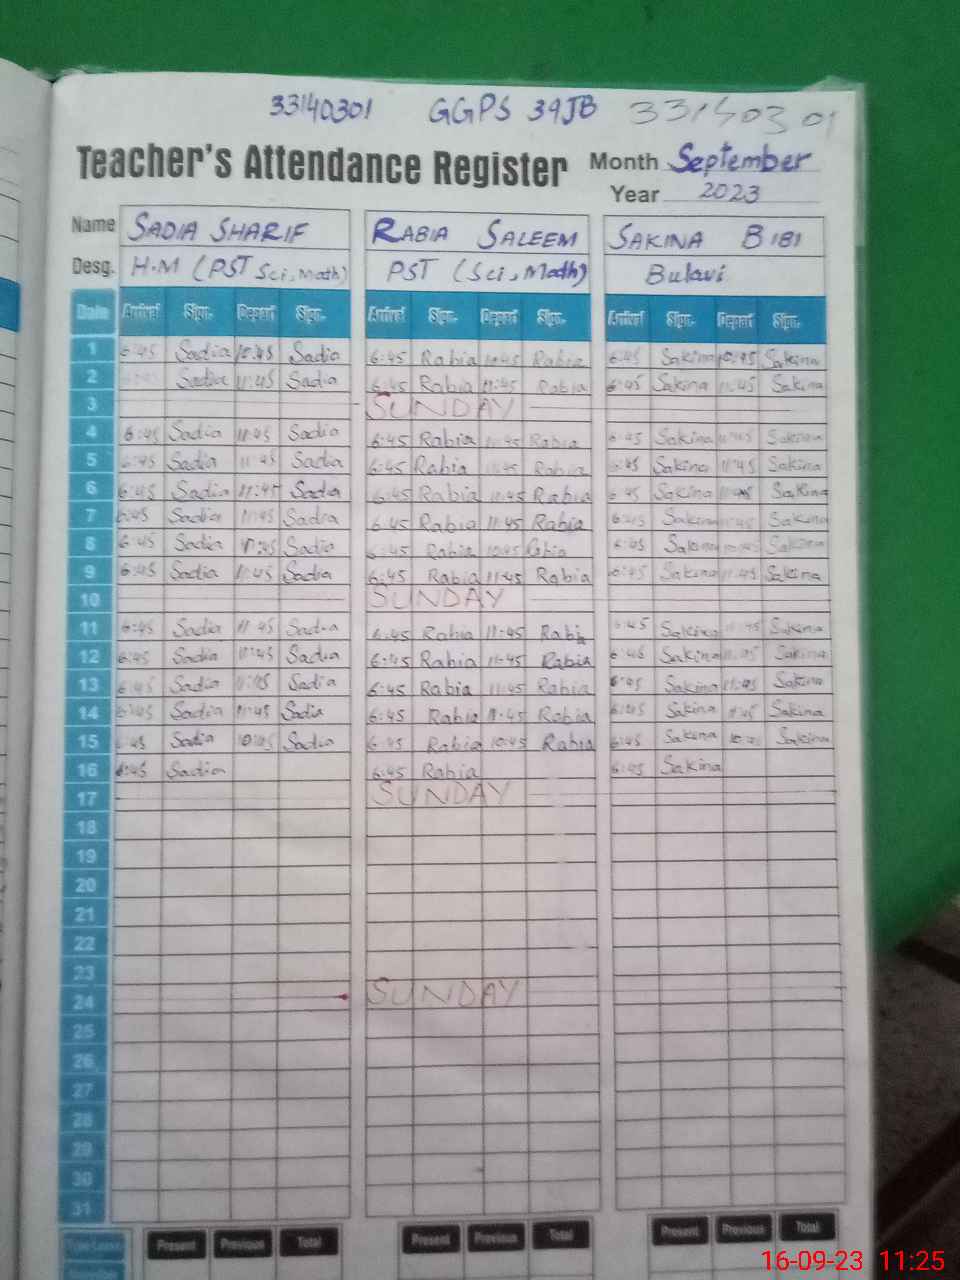 33140301 GGPS 39JB 33140301
Teacher's Attendance Register Month September
Year 2023
Name SADIA SHARIF RABIA SALEEM SAKINA BIBI
Desg. H.M (PST Sci, Math) PST (Sci, Math) Bulavi
Date Arrival Sign. Depart Sign. Arrival Sign. Depart Sign. Arrival Sign. Depart Sign.
1 6:45 Sadia 10:45 Sadia 6:45 Rabia 10:45 Rabia 6:45 Sakina 10:45 Sakina
2 Sadia 11:45 Sadia 6:45 Rabia 11:45 Rabia 6:45 Sakina 11:45 Sakina
3 SUNDAY
4 6:45 Sadia 11:45 Sadia 6:45 Rabia 11:45 Rabia 6:45 Sakina 11:45 Sakina
5 6:45 Sadia 11:45 Sadia 6:45 Rabia 11:45 Rabia 6:45 Sakina 11:45 Sakina
6 6:45 Sadia 11:45 Sadia 6:45 Rabia 11:45 Rabia 6:45 Sakina 11:45 Sakina
7 6:45 Sadia 11:45 Sadia 6:45 Rabia 11:45 Rabia 6:45 Sakina 11:45 Sakina
8 6:45 Sadia Sadia 6:45 Rabia 10:45 Rabia 6:45 Sakina 10:45 Sakina
9 6:45 Sadia 11:45 Sadia 6:45 Rabia 11:45 Rabia 6:45 Sakina 11:45 Sakina
10 SUNDAY
11 6:45 Sadia 11:45 Sadia 6:45 Rabia 11:45 Rabia 6:45 Sakina 11:45 Sakina
12 6:45 Sadia 11:45 Sadia 6:45 Rabia 11:45 Rabia 6:45 Sakina 11:45 Sakina
13 6:45 Sadia 11:45 Sadia 6:45 Rabia 11:45 Rabia 6:45 Sakina 11:45 Sakina
14 6:45 Sadia 11:45 Sadia 6:45 Rabia 11:45 Rabia 6:45 Sakina 11:45 Sakina
15 6:45 Sadia 10:45 Sadia 6:45 Rabia 10:45 Rabia 6:45 Sakina Sakina
16 6:45 Sadia 6:45 Rabia 6:45 Sakina
17 SUNDAY
18
19
20
21
22
23
24 SUNDAY
25
26
27
28
29
30
31
Present Previous Total Present Previous Total Present Previous Total
16-09-23 11:25